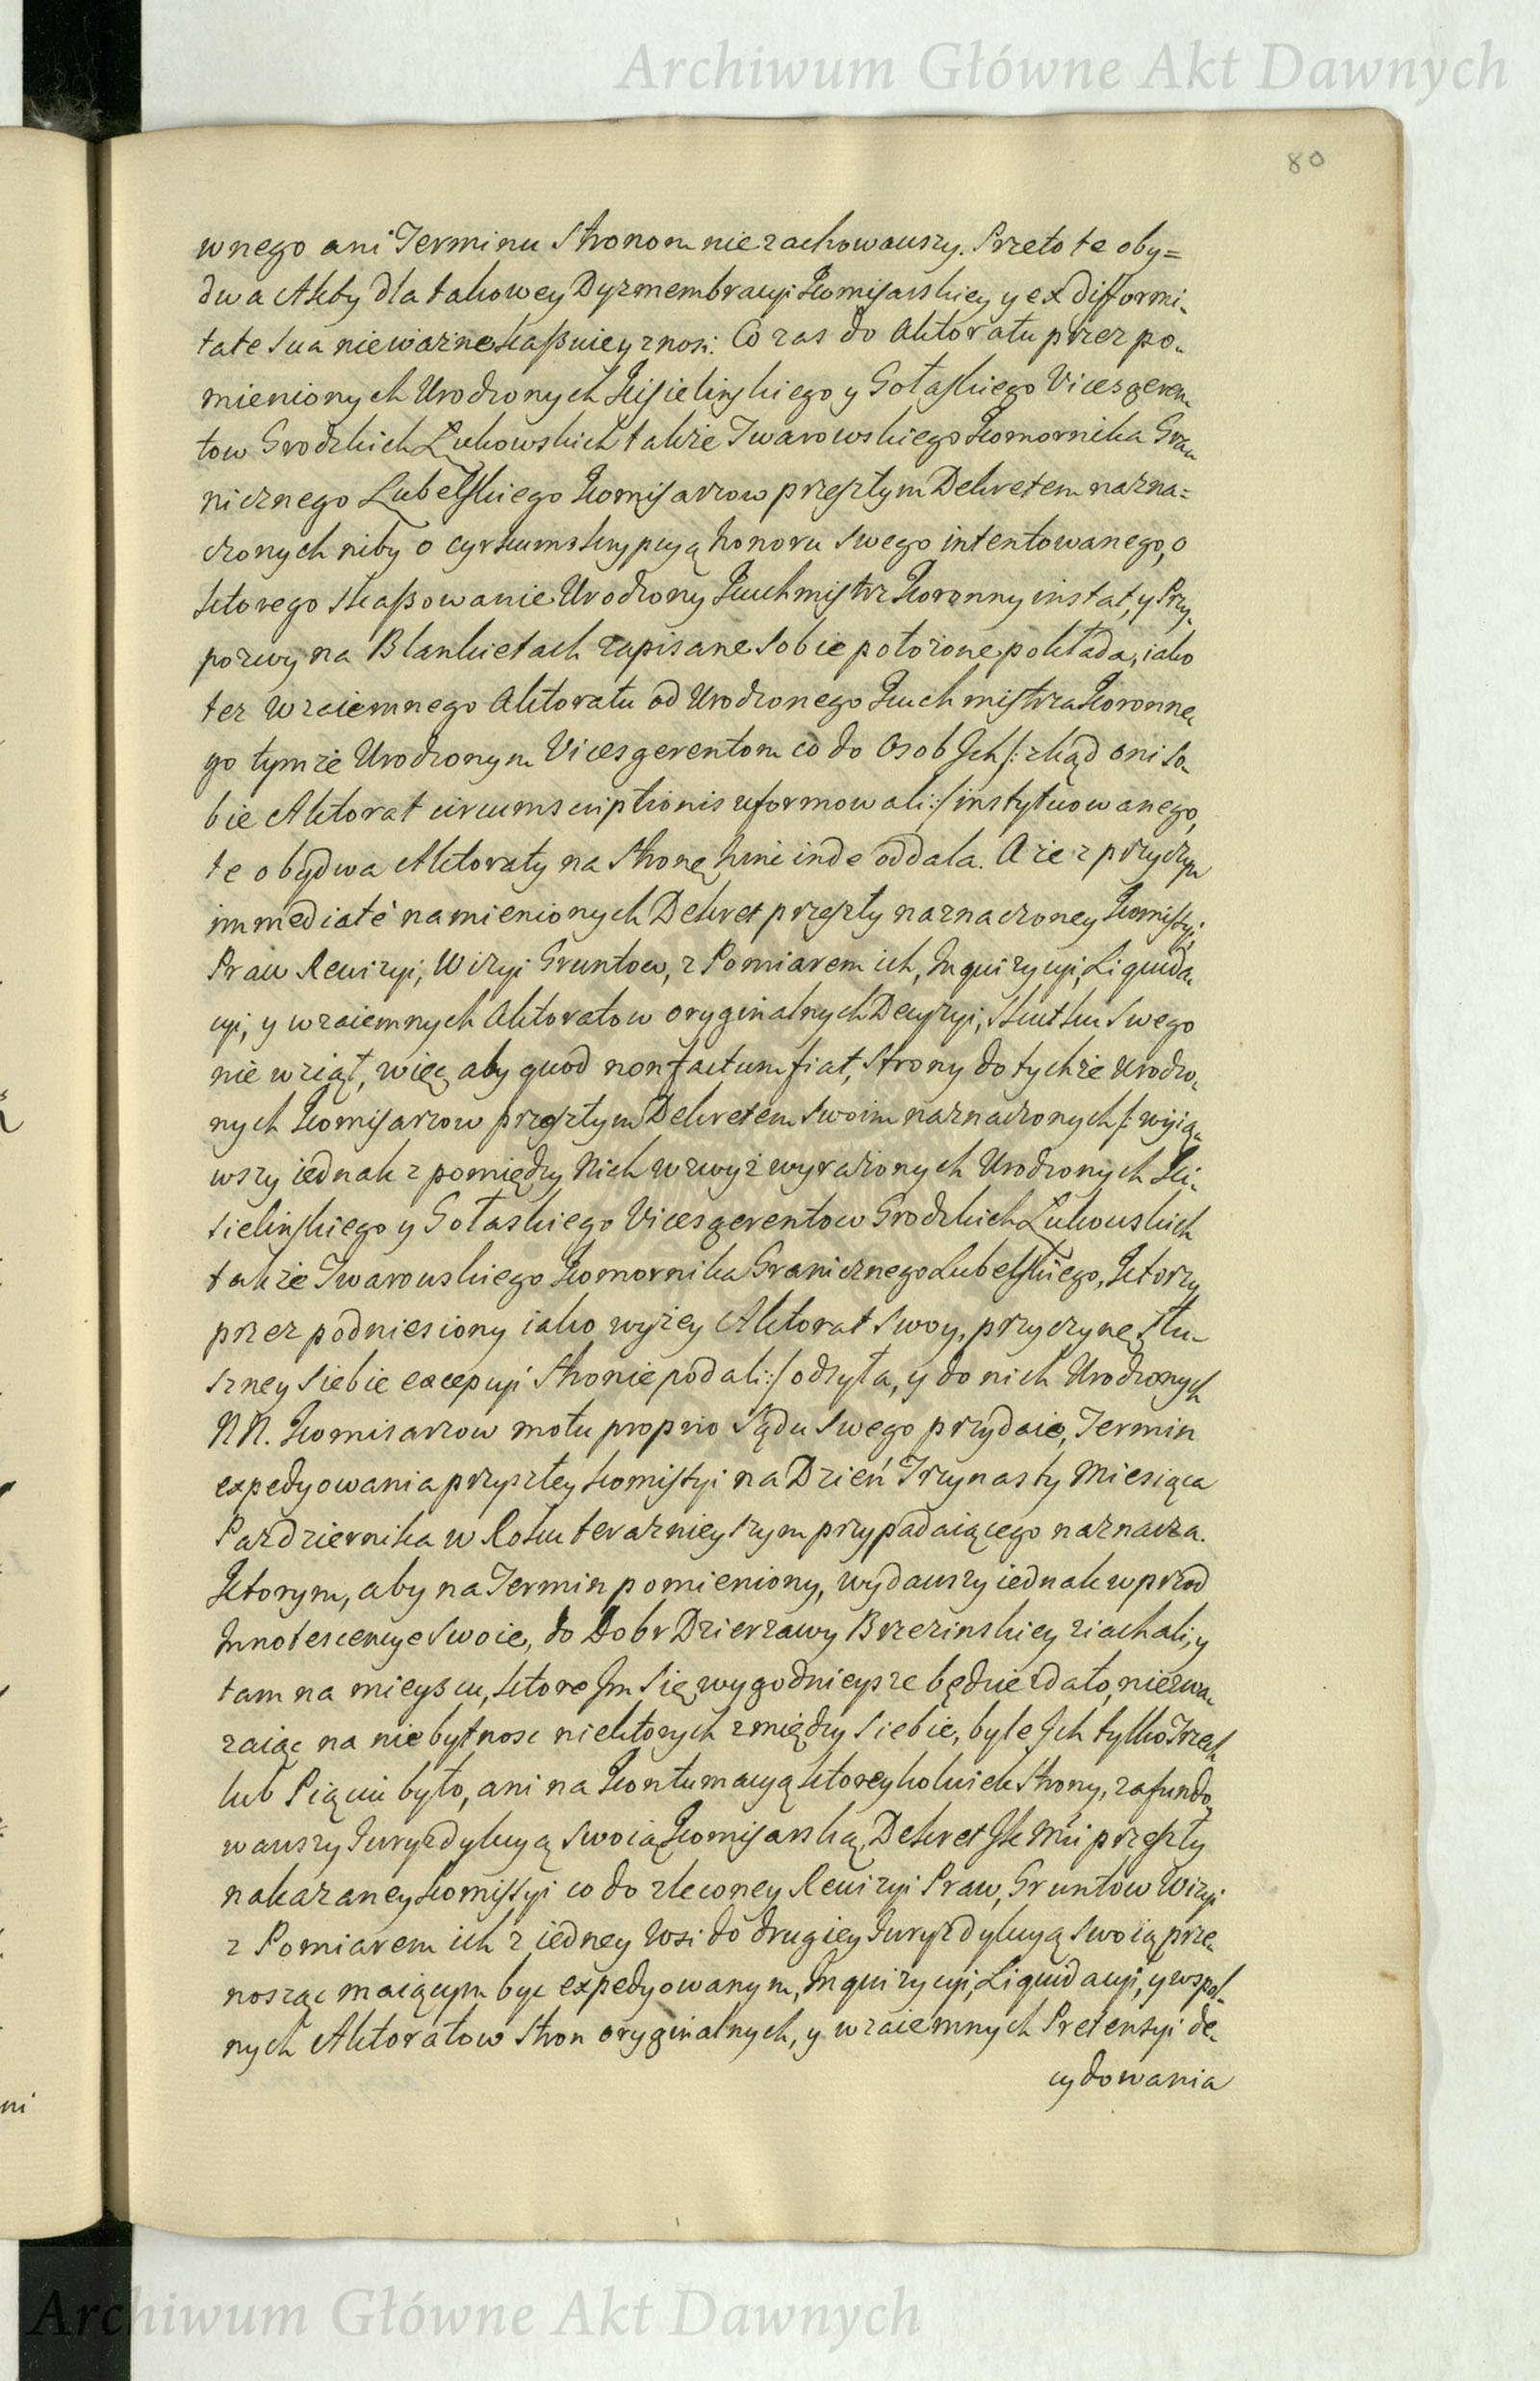 Archiwum Główne Akt Dawnych
80
wnego ani Terminu Stronom nie zachowawszy. Przeto te oby=
dwa Akty dla takowey Dyzmembracyi Komissarskiey y ex difformi-
tate sua nieważne kassuie y znosi. Co zas do Aktoratu przez po-
mienionych Urodzonych Kisielińskiego y Gołaskiego Vicesgeren-
tow Grodzkich Łukowskich także Twarowskiego Komornika Gra-
nicznego Lubelskiego Komisarzow przeszłym Dekretem nazna=
czonych niby o cyrkumskrypcyą honoru Swego intentowanego, o
ktorego skassowanie Urodzony Kuchmistrz Koronny instat, y Przy-
pozwy na Blankietach zapisane Sobie położone pokłada, iako
tez wzaiemnego Aktoratu od Urodzonego Kuchmistrza Koronne-
go tymże Urodzonym Vicesgerentom co do Osob Ich /: zkąd oni So-
bie Aktorat circumscriptionis uformowali :/ instytuowanego,
te obydwa Aktoraty na Stronę hinc inde oddala. A że z przyczyn
immediatè namienionych Dekret przeszły naznaczoney Komissyi,
Praw Rewizyi, Wizyi Gruntow, z Pomiarem ich, Inquizycyi, Liquida-
cyi, y wzaiemnych Aktoratow oryginalnych Decyzyi, Skutku Swego
nie wziął, więc aby quod non factum fiat, Strony do tychże Urodzo-
nych Komisarzow przeszłym Dekretem Swoim naznaczonych /: wyią-
wszy iednak z pomiędzy Nich wzwyż wyrażonych Urodzonych Ki-
sielinskiego y Gołaskiego Vicesgerentow Grodzkich Łukowskich
także Twarowskiego Komornika Granicznego Lubelskiego, Ktorzy
przez podniesiony iako wyżey Aktorat Swoy, przyczynę Słu-
szney Siebie excepcyi Stronie podali :/ odsyła, y do nich Urodzonych
NN. Komisarzow motu proprio Sądu Swego przydaie, Termin
expedyowania przyszłey Komissyi na Dzień Trzynasty Miesiąca
Pazdziernika w Roku teraznieyszym przypadaiącego naznacza.
Ktorym, aby na Termin pomieniony, wydawszy iednak wprzod
Innotescencye Swoie, do Dobr Dzierzawy Brzezinskiey ziachali, y
tam na mieyscu, ktore Im Się wygodnieysze będzie zdało, niezwa-
zaiąc na niebytnosc niektorych zmiędzy Siebie, byle Ich tylko Trzech
lub Pięciu było, ani na Kontumacyą ktoreykolwiek Strony, zafundo-
wawszy Juryzdykcyą Swoią Komisarską, Dekret Ich Mci przeszły
nakazaney Komissyi co do zleconey Rewizyi Praw, Gruntow Wizyi
z Pomiarem ich z iedney Wsi do drugiey Juryzdykcyą Swoią prze-
nosząc maiącym byc expedyowanym, Inquizycyi, Liquidacyi, y wspol-
nych Aktoratow Stron oryginalnych, y wzaiemnych Pretensyi de-
cydowania
Archiwum Główne Akt Dawnych